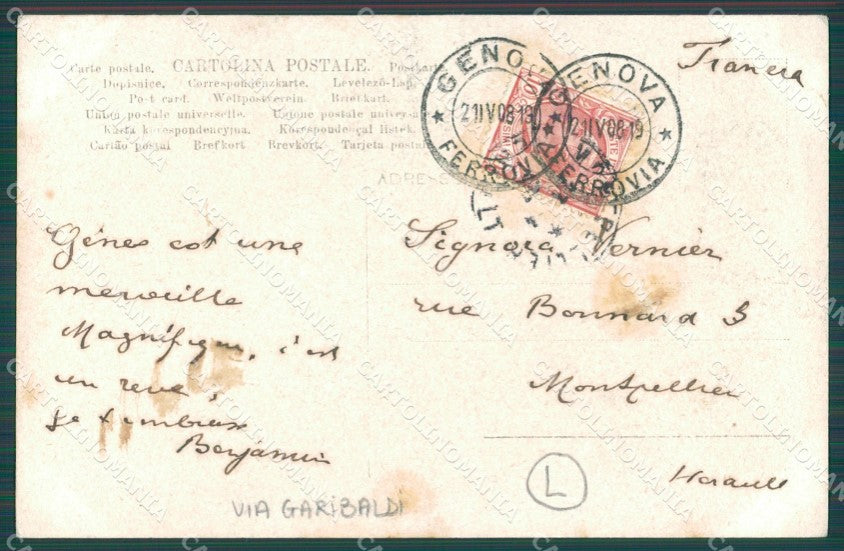 Carte postale. CARTOLINA POSTALE. Postkarte
Dopisnice. Correspondenzkarte. Levelező-Lap.
Post card. Weltpostverein. Briefkart.
Union postale universelle. Unione postale universale
Karta korespondencyjna. Korespondenčni listek.
Cartão postal Brefkort. Brevkort. Tarjeta postal
GENOVA
21 IV 08 19
FERROVIA
GENOVA
21 IV 08 19
FERROVIA
Francia
Gênes est une
merveille
Magnifique, c'est
un reve,
Je t'embrasse
Benjamin
Signora Vernier
rue Bonnard 3
Montpellier
Herault
VIA GARIBALDI
L
CARTOLINOMANIA